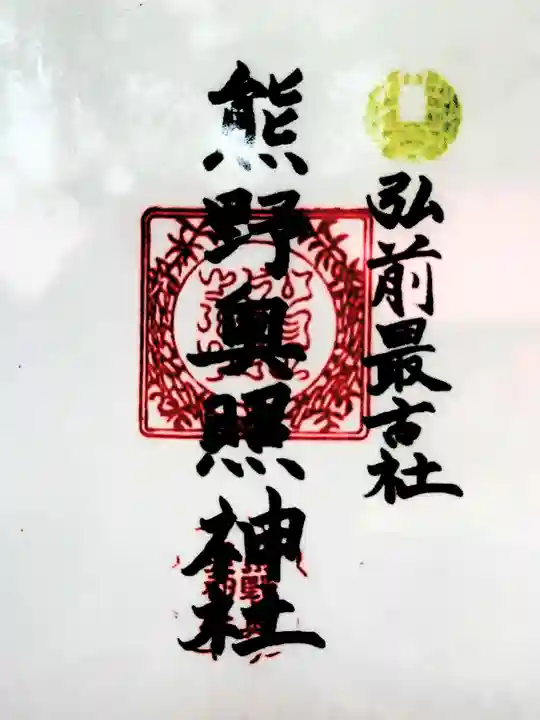 弘前最古社
熊野奥照神社